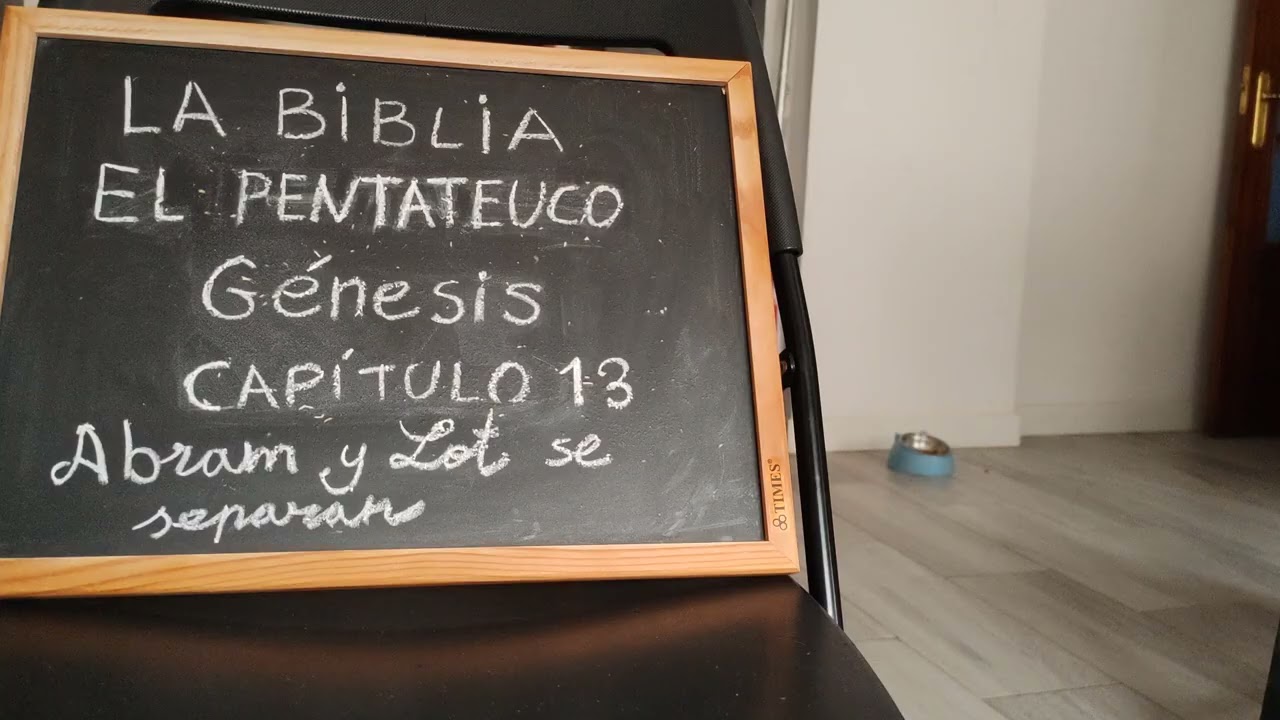 LA BIBLIA
EL PENTATEUCO
Génesis
CAPÍTULO 13
Abram y Lot se
separan
TIMES®